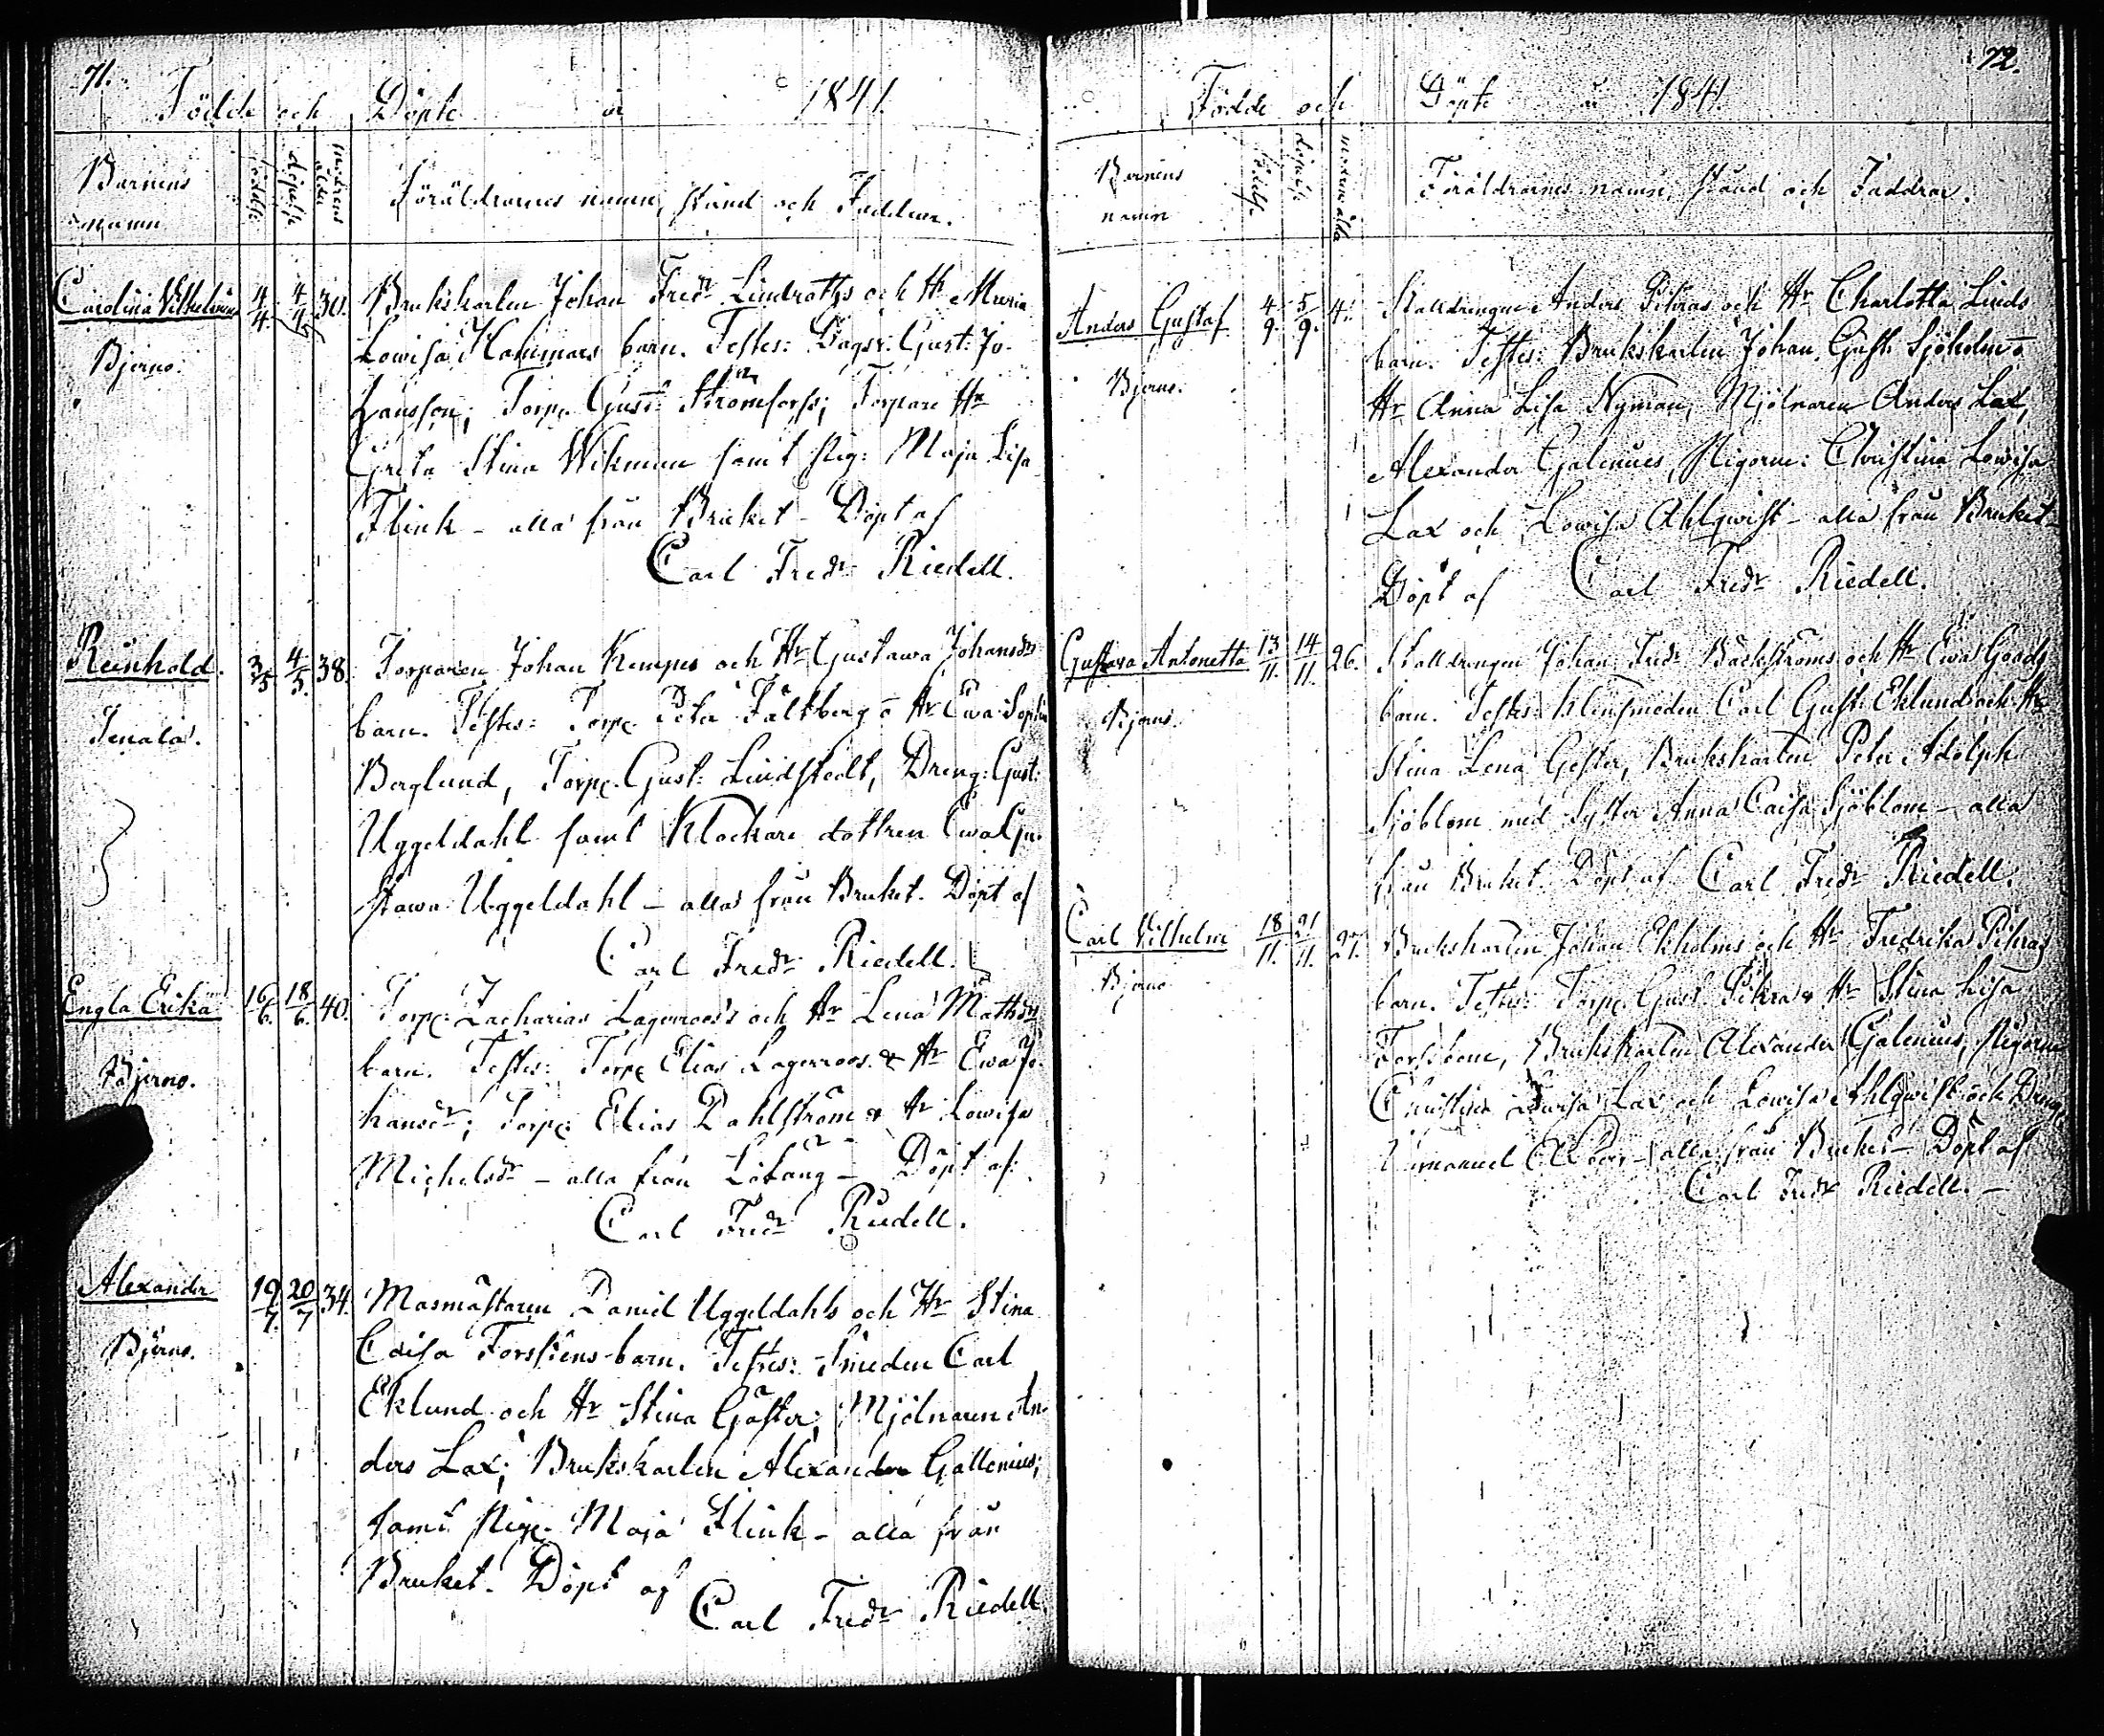 71.
Födde och Döpte år 1841.
Barnens namn
födelse
döpelse
modrens ålder
Föräldrarnes namn, stånd och Faddrar.
Carolina Vilhelmina 4/4. 4/4 30. Bruksharlen Johan Fredr Lindroths och Hr Maria
Bjerno.
Lowisa Hammars barn. Testes: Dagsv: Gust: Jo-
hansson; Torp. Gust: Strömforss; Torpare Hr
Greta Stina Wikman samt pig: Maja Lisa
Flink - alla från Bruket - Döpt af
Carl Fredr Riedell.
Reinhold. 3/5 4/5. 38. Torparen Johan Kempes och Hr Gustawa Johansdr
Tenala.
barn. Testes: Torp. Peter Fältberg o Hr Ewa Sophia
Berglund, Torp. Gust: Lindstedt, Dreng: Gust:
Uggeldahl samt Klockare dottren Ewa Gu-
stawa Uggeldahl - alla från Bruket. Döpt af
Carl Fredr Riedell.
Engla Erika 16/6. 18/6. 40. Torp. Zacharias Lagerroos's och Hr Lena Mathsdr
Bjerno.
barn. Testes: Torp. Elias Lagerroos & Hr Ewa Jo-
hansdr; Torp. Elias Dahlström & Hr Lowisa
Michelsdr - alla från - Döpt af
Carl Fredr Riedell.
Alexander 19/7. 20/7 34. Masmästaren Daniel Uggeldahls och Hr Stina
Bjerno.
Caisa Forsstens barn. Testes: Smeden Carl
Eklund och Hr Stina Gäster; Mjölnaren An-
ders Lax; Brukskarlen Alexander Gallenius;
samt Pig. Maja Flink - alla från
Bruket. Döpt af
Carl Fredr Riedell.
72.
Födde och Döpte år 1841.
Barnens namn
födelse
döpelse
modrens ålder
Föräldrarnes namn, stånd och Faddrar.
Anders Gustaf 4/9. 5/9. Stalldrengen Anders Pihras och Hr Charlotta Linds
Bjerno.
barn. Testes: Brukskarlen Johan Gust. Sjöholm o
Hr Anna Lisa Nyman, Mjölnaren Anders Lax,
Alexander Galenius, Pigorne: Christina Lowisa
Lax och Lowisa Ahlqwist - alla från Bruket -
Döpt af Carl Fredr Riedell.
Gustava Antonetta 13/11. 14/11. 26. Stalldrengen Johan Fredr Bäckströms och Hr Ewa Goods
Bjerno.
barn. Testes: Klensmeden Carl Gust. Eklund och Hr
Stina Lena Gester, Brukskarlen Peter Adolph
Sjöblom med Syster Anna Caisa Sjöblom - alla
från Bruket. Döpt af Carl Fredr Riedell.
Carl Vilhelm 18/11. 21/11. 27. Brukskarlen Johan Ekholms och Hr Fredrika Pihras
Bjerno
barn. Testes: Torp. Gust. Pihra & Hr Stina Lisa
Forsbom, Brukskarlen Alexander Galenius, Pigorne
Christina Lowisa Lax och Lowisa Ahlqwist och Dreng
- alla från Bruket - Döpt af
Carl Fredr Riedell. -